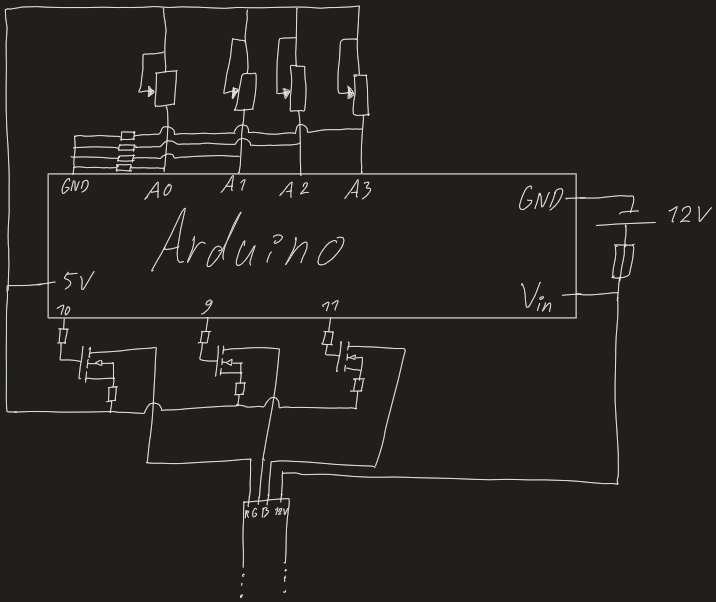 GND A0 A1 A2 A3
GND
12V
Arduino
5V
Vin
10 9 11
R G B 12V